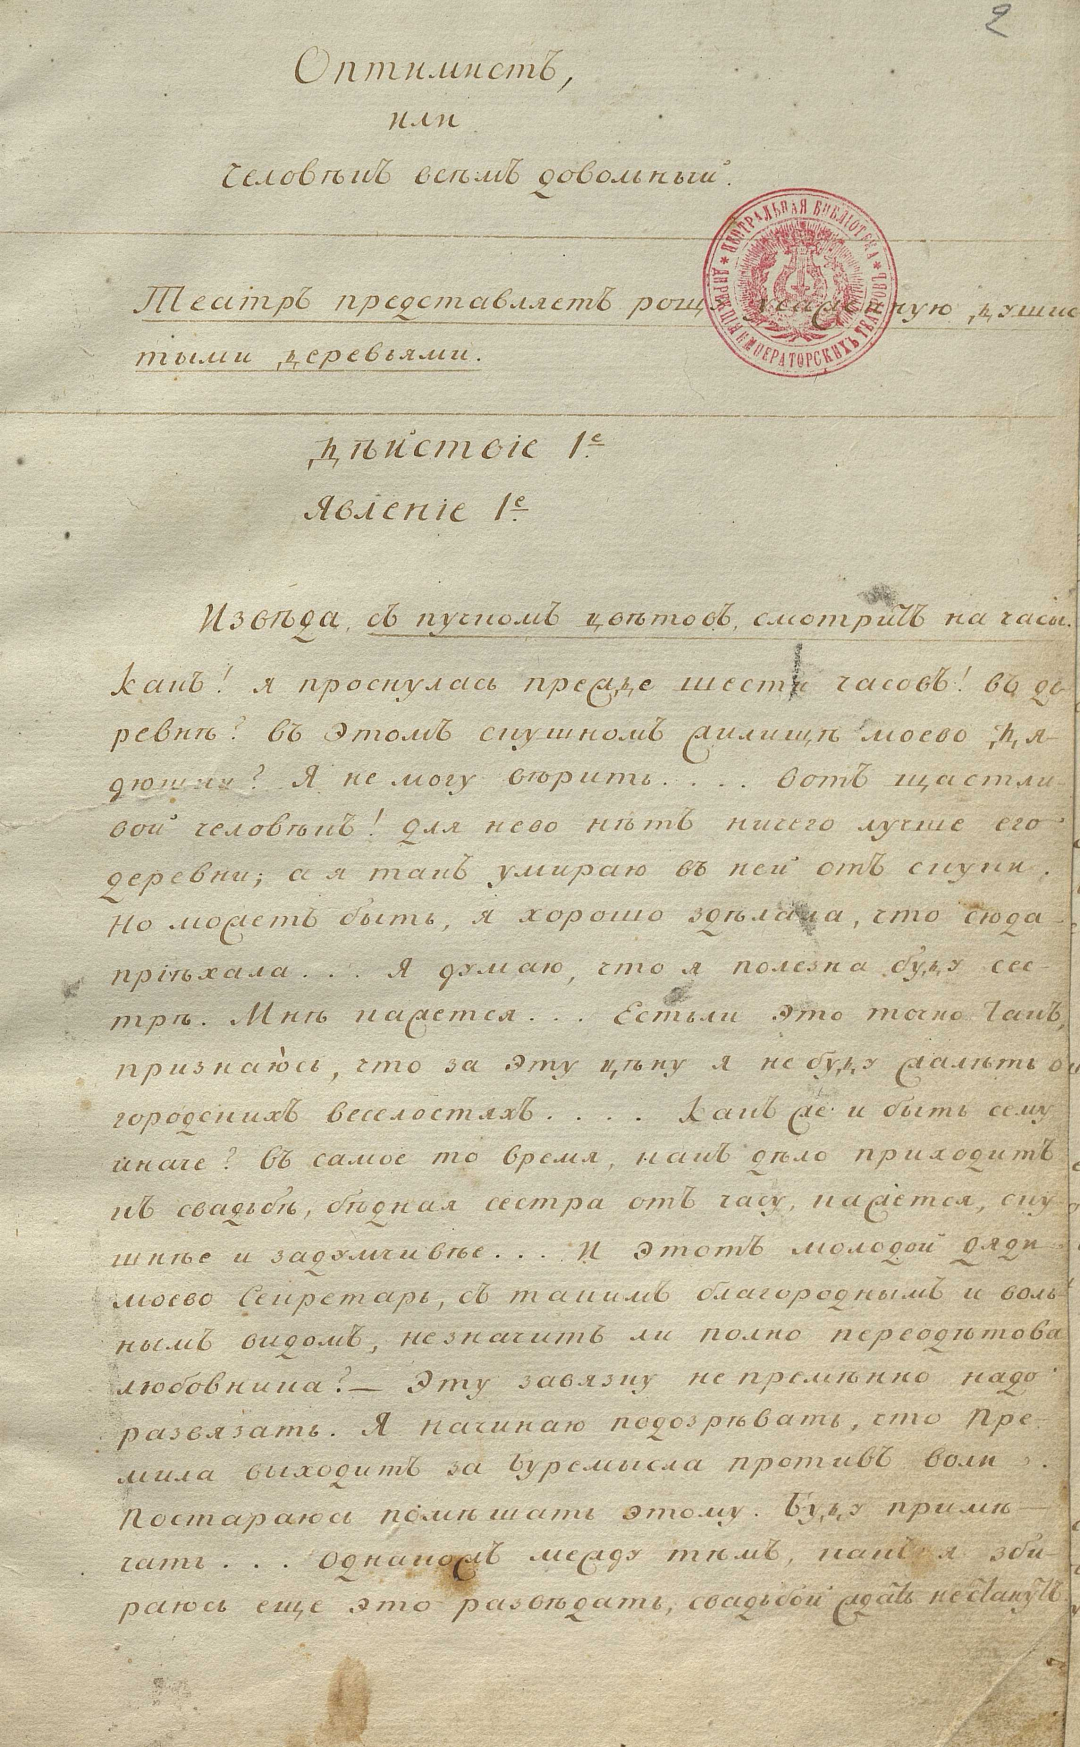 2
Оптимистъ,
или
Человѣкъ всѣмъ довольный.
ЦЕНТРАЛЬНАЯ БИБЛІОТЕКА * ДИРЕКЦІИ ИМПЕРАТОРСКИХЪ ТЕАТРОВЪ *
Театръ представляетъ рощу усаженную душис
тыми деревьями.
Дѣйствіе 1е
Явленіе 1е
Извѣда, съ пучкомъ цвѣтовъ, смотритъ на часы.
Какъ! я проснулась прежде шести часовъ! въ де
ревнѣ? въ этомъ скушномъ жилищѣ моево дя-
дюшки? Я не могу вѣрить.... Вотъ щастли-
вой человѣкъ! для нево нѣтъ ничего лучше его
деревни; а я такъ умираю въ ней отъ скуки.
Но можетъ быть, я хорошо здѣлала, что сюда
пріѣхала... Я думаю, что я полезна буду сес-
трѣ. Мнѣ кажется... Естьли это точно такъ,
признаюсь, что за эту цѣну я не буду жалѣть о
городскихъ веселостяхъ.... Какъ же и быть сему
иначе? въ самое то время, какъ дѣло приходитъ
къ свадьбѣ, бѣдная сестра отъ часу, кажется, ску
шнѣе и задумчивѣе... И этотъ молодой дяди
моево Секретарь, съ такимъ благороднымъ и воль-
нымъ видомъ, незначитъ ли полно переодѣтова
любовника? — Эту завязку непремѣнно надо
развязать. Я начинаю подозрѣвать, что Пре-
мила выходитъ за Буремысла противъ воли.
Постараюсь помѣшать этому. Буду примѣ-
чать... Однакожъ между тѣмъ, какъ я зби-
раюсь еще это развѣдать, свадьбой ждать нестанутъ